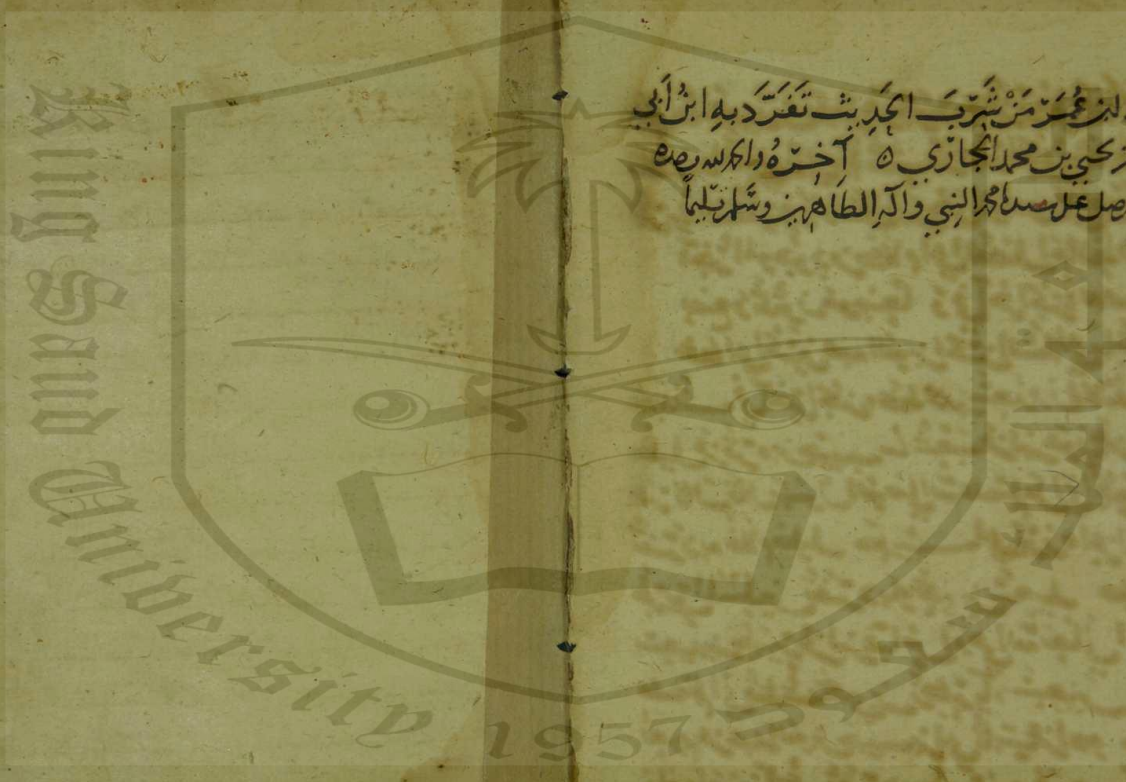 ابن عُمَرَ مَنْ شَرِبَ الحَدِيث تَفَرَّدَ بِهِ ابنُ أَبي
يحيي بن محمد الجاري ه آخِرُهُ والحمد لله وحده
وصل على سيدنا محمد النبي وآله الطاهرين وسَلم تسليماً
King Saud University 1957